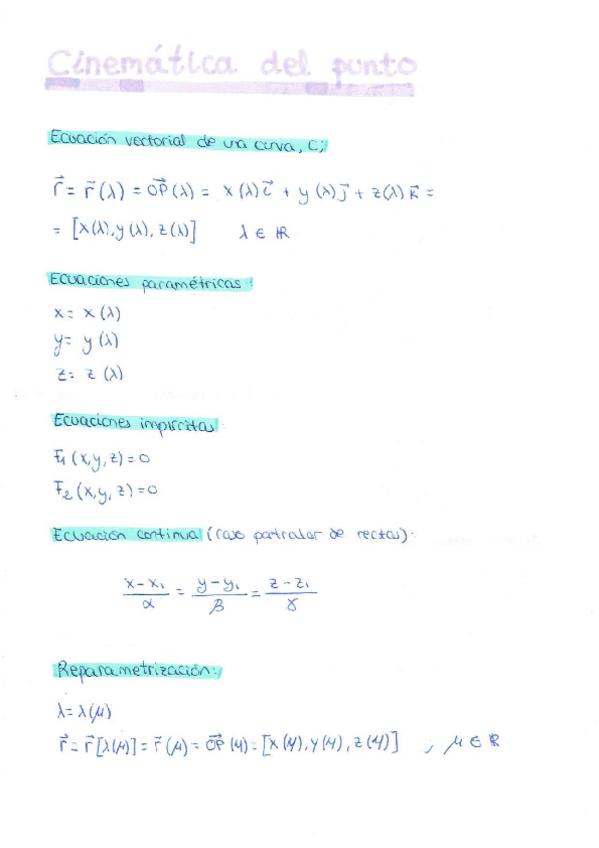 Cinemática del punto
Ecuación vectorial de una curva, C;
r⃗ = r⃗(λ) = OP⃗(λ) = x(λ)i⃗ + y(λ)j⃗ + z(λ)k⃗ =
= [x(λ), y(λ), z(λ)] λ ∈ ℝ
Ecuaciones paramétricas:
x = x(λ)
y = y(λ)
z = z(λ)
Ecuaciones implícitas:
F₁(x,y,z)=0
F₂(x,y,z)=0
Ecuación continua (caso particular de rectas):
(x-x₁)/α = (y-y₁)/β = (z-z₁)/γ
Reparametrización:
λ = λ(μ)
r⃗ = r⃗[λ(μ)] = r⃗(μ) = OP⃗(μ) = [x(μ), y(μ), z(μ)] ; μ ∈ ℝ